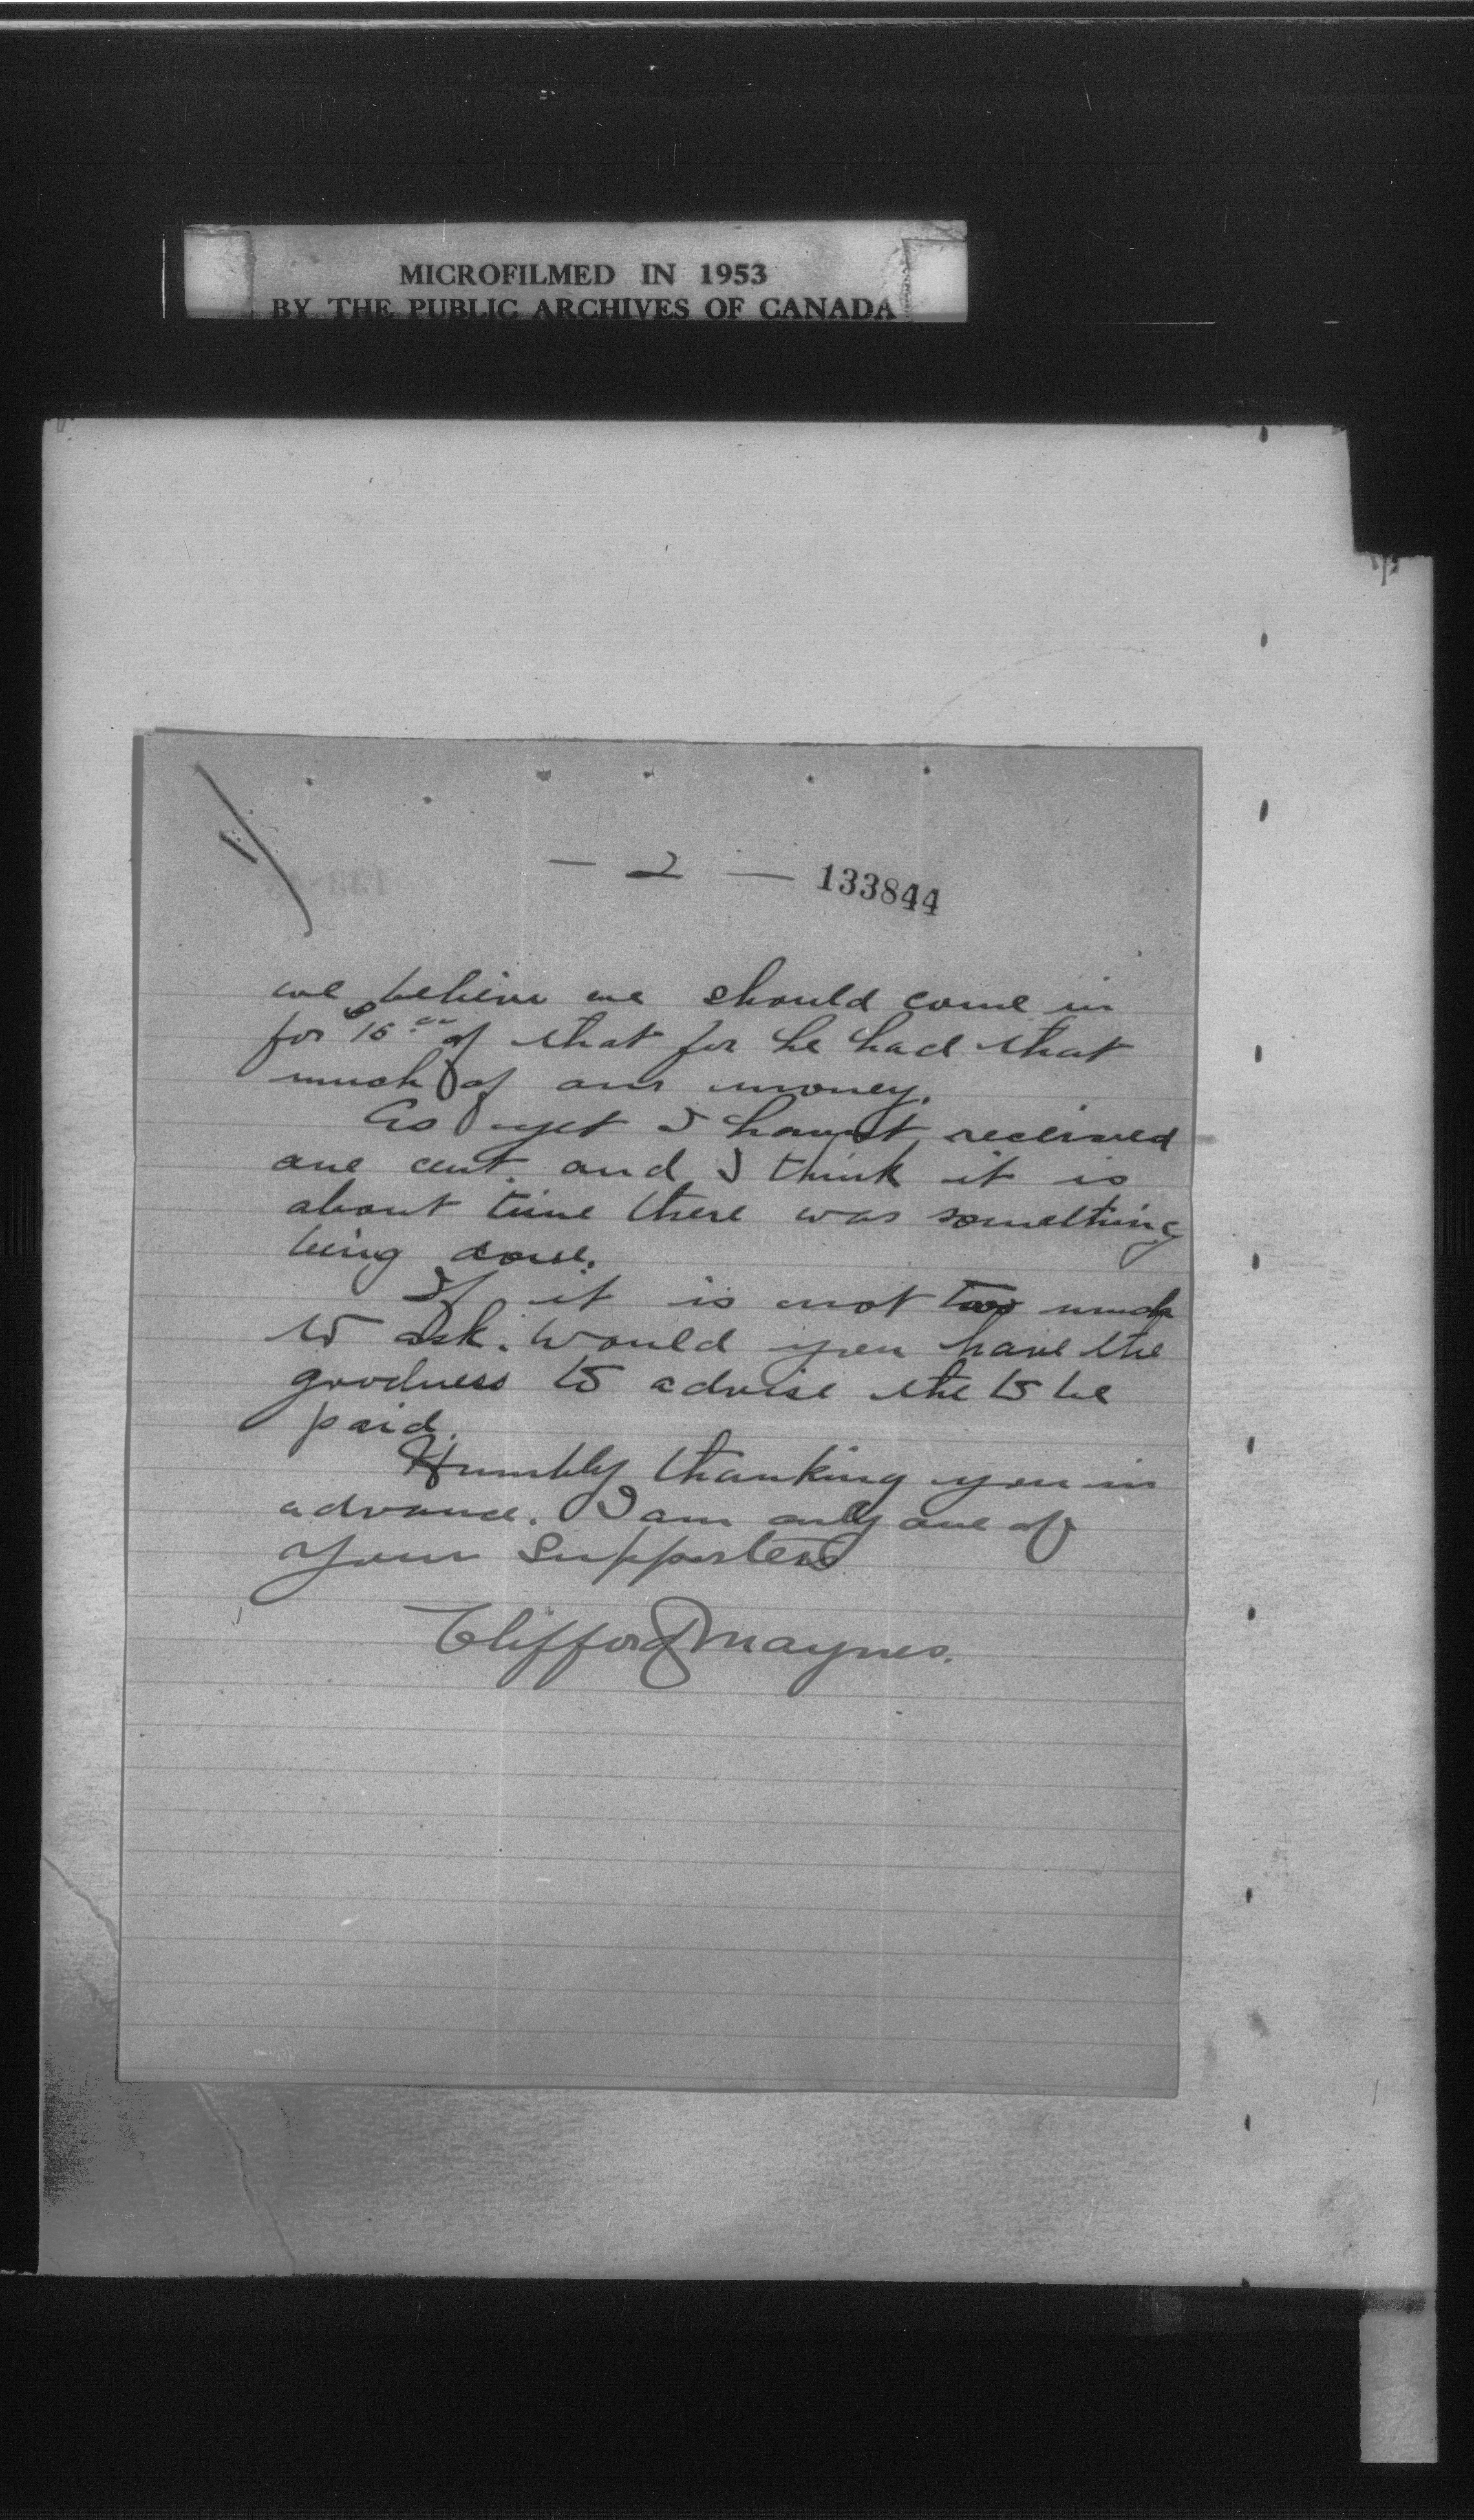 MICROFILMED IN 1953
BY THE PUBLIC ARCHIVES OF CANADA
— 2 — 133844
we believe we should come in
for $15.00 of that for he had that
much of our money.
As yet I havn't received
one cent. and I think it is
about time there was something
being done.
If it is not too much
to ask. Would you have the
goodness to advise the to be
paid.
Humbly thanking you in
advance. I am only one of
your Supporters
Clifford Maynes.